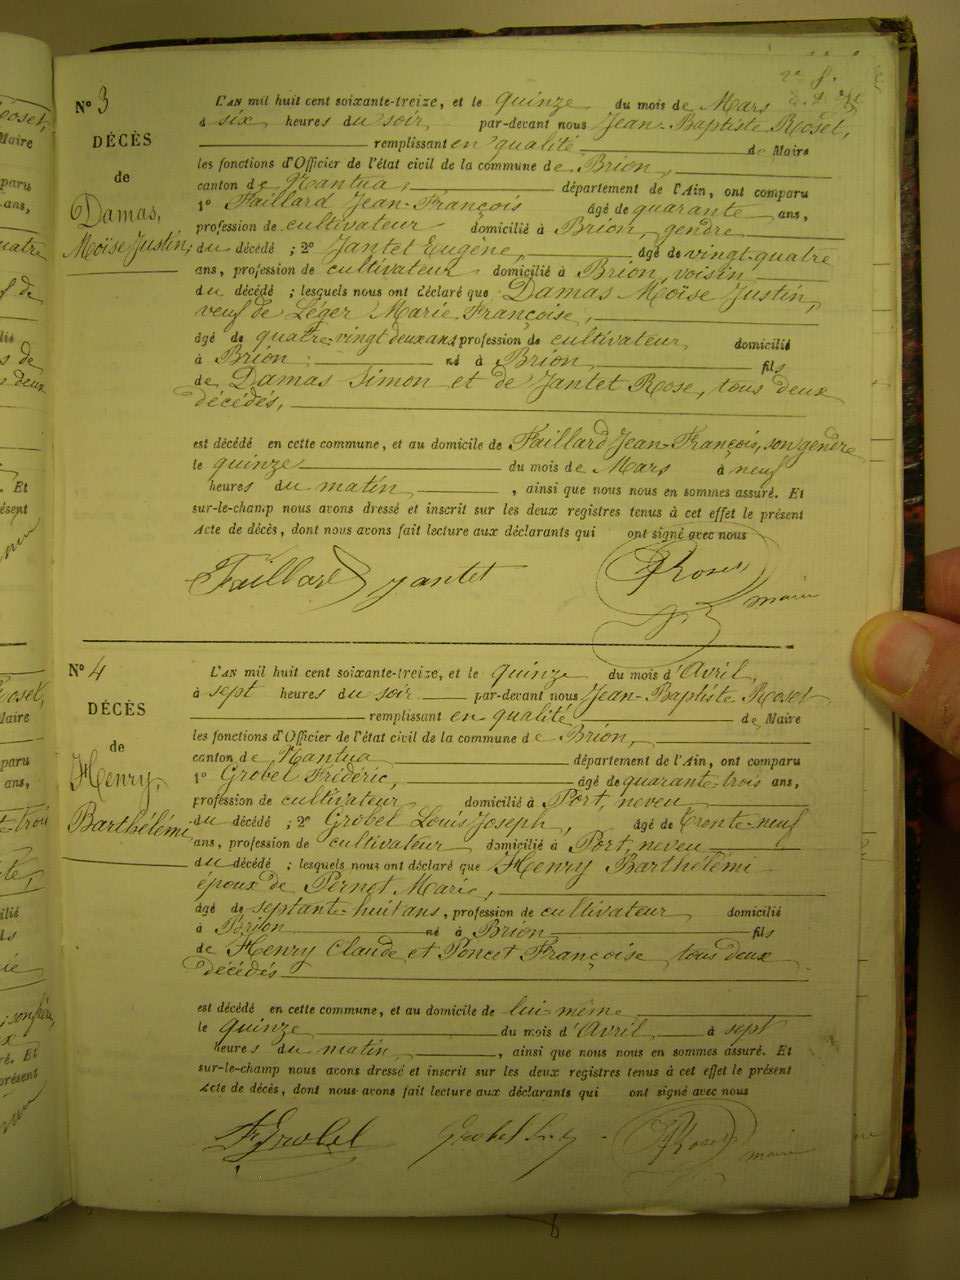 Nº 3
DÉCÈS
de
Damas,
Moïse Justin,
L'AN mil huit cent soixante-treize, et le quinze du mois de Mars
à six heures du soir par-devant nous Jean-Baptiste Roset,
remplissant en qualité de Maire
les fonctions d'Officier de l'état civil de la commune de Brion,
canton de Nantua, département de l'Ain, ont comparu
1º Faillard Jean-François âgé de quarante ans,
profession de cultivateur domicilié à Brion, gendre
du décédé ; 2º Jantet Eugène, âgé de vingt-quatre
ans, profession de cultivateur domicilié à Brion, voisin
du décédé ; lesquels nous ont déclaré que Damas Moïse Justin,
veuf de Léger Marie Françoise,
âgé de quatre-vingt deux ans profession de cultivateur, domicilié
à Brion né à Brion, fils
de Damas Simon et de Jantet Rose, tous deux
décédés,
est décédé en cette commune, et au domicile de Faillard Jean-François, son gendre
le quinze du mois de Mars à neuf
heures du matin, ainsi que nous nous en sommes assuré. Et
sur-le-champ nous avons dressé et inscrit sur les deux registres tenus à cet effet le présent
Acte de décès, dont nous avons fait lecture aux déclarants qui ont signé avec nous
Faillard Jantet Roset maire
Nº 4
DÉCÈS
de
Henry,
Barthélémi
L'AN mil huit cent soixante-treize, et le quinze du mois d'Avril,
à sept heures du soir par-devant nous Jean-Baptiste Roset
remplissant en qualité de Maire
les fonctions d'Officier de l'état civil de la commune de Brion,
canton de Nantua département de l'Ain, ont comparu
1º Grobel Frédéric, âgé de quarante-trois ans,
profession de cultivateur domicilié à Port, neveu
du décédé ; 2º Grobel Louis Joseph, âgé de trente-neuf
ans, profession de cultivateur domicilié à Port, neveu
du décédé ; lesquels nous ont déclaré que Henry Barthélémi
époux de Pernet Marie,
âgé de septante-huit ans, profession de cultivateur domicilié
à Brion né à Brion fils
de Henry Claude et Poncet Françoise tous deux
décédés
est décédé en cette commune, et au domicile de lui-même
le quinze du mois d'Avril à sept
heures du matin, ainsi que nous nous en sommes assuré. Et
sur-le-champ nous avons dressé et inscrit sur les deux registres tenus à cet effet le présent
Acte de décès, dont nous avons fait lecture aux déclarants qui ont signé avec nous
F Grobel Grobel Roset maire